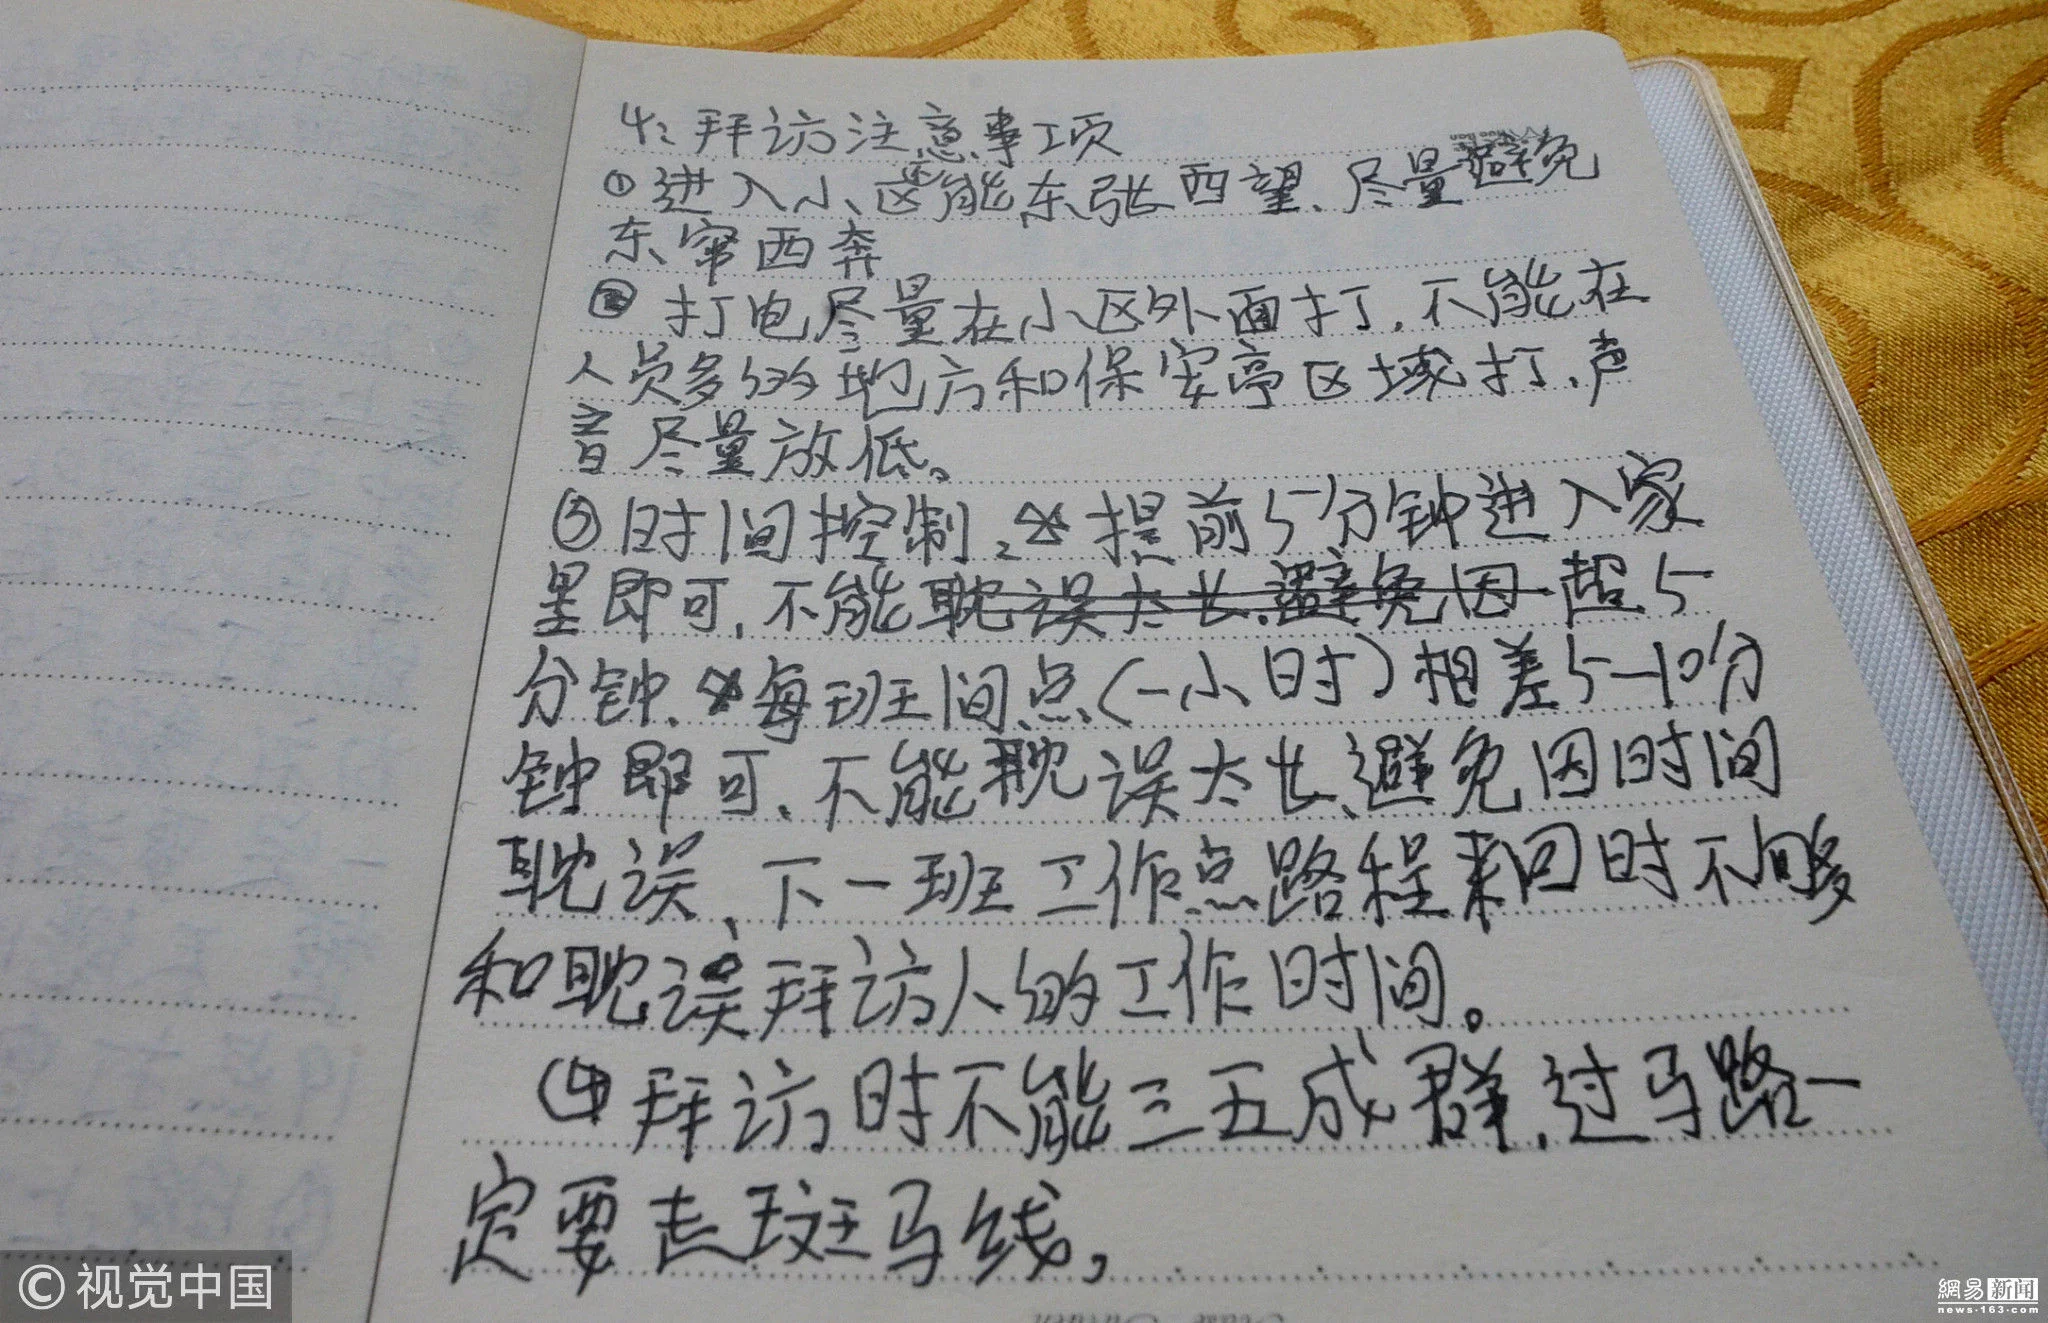 4: 拜访注意事项
① 进入小区不能东张西望、尽量避免
东窜西奔
② 打电尽量在小区外面打, 不能在
人员多的地方和保安亭区域打, 声
音尽量放低。
③ 时间控制, 提前5分钟进入家
里即可, 不能耽误太长, 避免因超5
分钟、每班间点(一小时)相差5-10分
钟即可、不能耽误太长、避免因时间
耽误、下一班工作点路程来回时不够
和耽误拜访人的工作时间。
④ 拜访时不能三五成群, 过马路一
定要走斑马线,
© 视觉中国
網易新闻
news·163·com